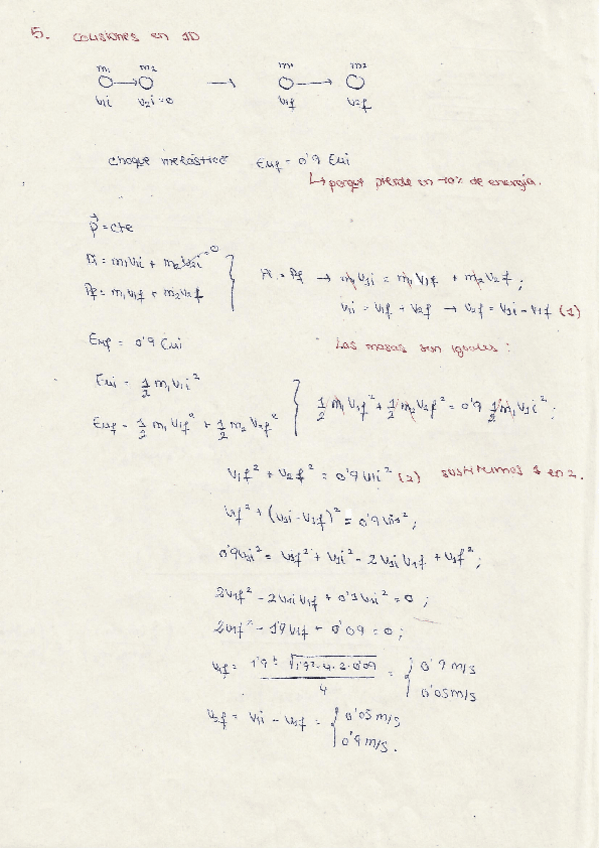 5. Colisiones en 1D
m₁ m₂ m₁ m₂
v₁i v₂i=0 → v₁f v₂f
choque inelástico Emf = 0'9 Emi
↳ porque pierde un 10% de energía.
p⃗ = cte
Pi = m₁v₁i + m₂v₂i⁰
Pi = Pf → m₁v₁i = m₁v₁f + m₂v₂f ;
Pf = m₁v₁f + m₂v₂f
v₁i = v₁f + v₂f → v₂f = v₁i - v₁f (1)
Emf = 0'9 Emi
Las masas son iguales :
Emi = ½ m₁v₁i²
½ m₁v₁f² + ½ m₂v₂f² = 0'9 ½ m₁v₁i² ;
Emf = ½ m₁v₁f² + ½ m₂v₂f²
v₁f² + v₂f² = 0'9 v₁i² (2) sustituimos 1 en 2.
v₁f² + (v₁i - v₁f)² = 0'9 v₁i² ;
0'9v₁i² = v₁f² + v₁i² - 2v₁i v₁f + v₁f² ;
2v₁f² - 2v₁i v₁f + 0'1v₁i² = 0 ;
2v₁f² - 1'9v₁f + 0'09 = 0 ;
v₁f = (1'9 ± √(1'9² - 4·2·0'09)) / 4 = { 0'9 m/s
0'05 m/s
v₂f = v₁i - v₁f = { 0'05 m/s
0'9 m/s.